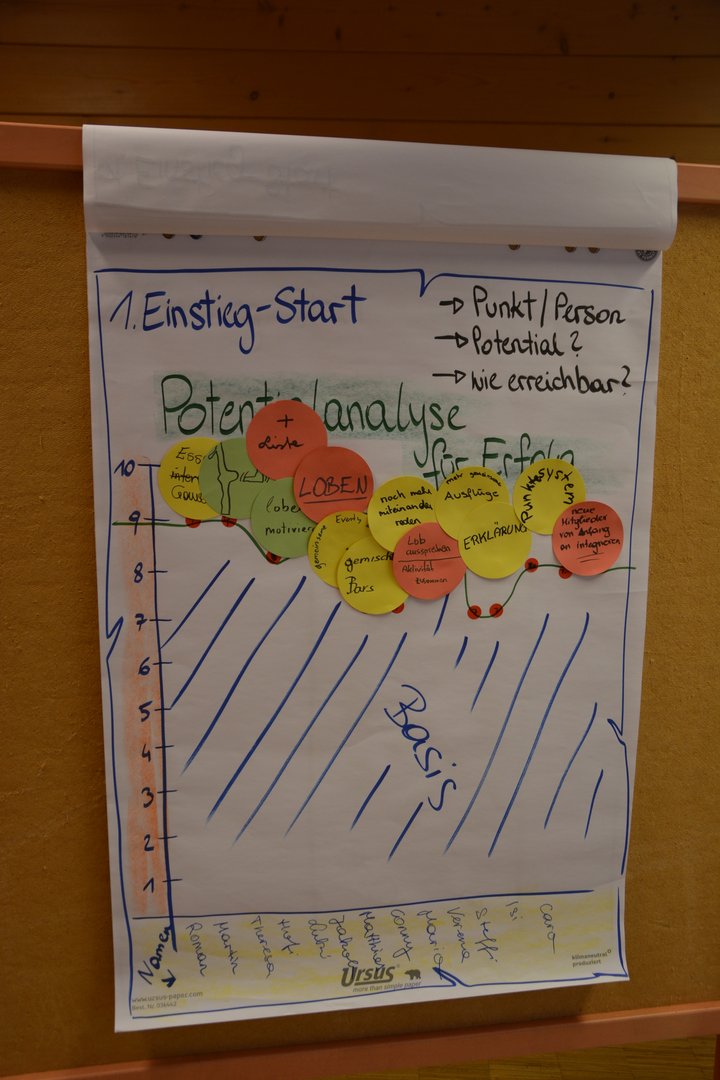 1. Einstieg-Start
→ Punkt / Person
→ Potential?
→ wie erreichbar?
Potentialanalyse
für Erfolg
+
Liste
LOBEN
lobe
motivier
gemeinsame
Events
gemisch
Bars
noch mehr
miteinander
reden
Lob
aussprechen
Aktivität
mehr gemeinsame
AUSFLÜGE
ERKLÄRUNG
Punktesystem
neue
Mitglieder
von Anfang
an integrieren
10
9
8
7
6
5
4
3
2
1
Basis
Namen
Roman
Martin
Theresa
Jakob
Matthias
Conny
Mario
Verena
Steffi
Isi
Caro
Ursus
more than simple paper
www.ursus-paper.com
Best. Nr.
klimaneutral
produziert